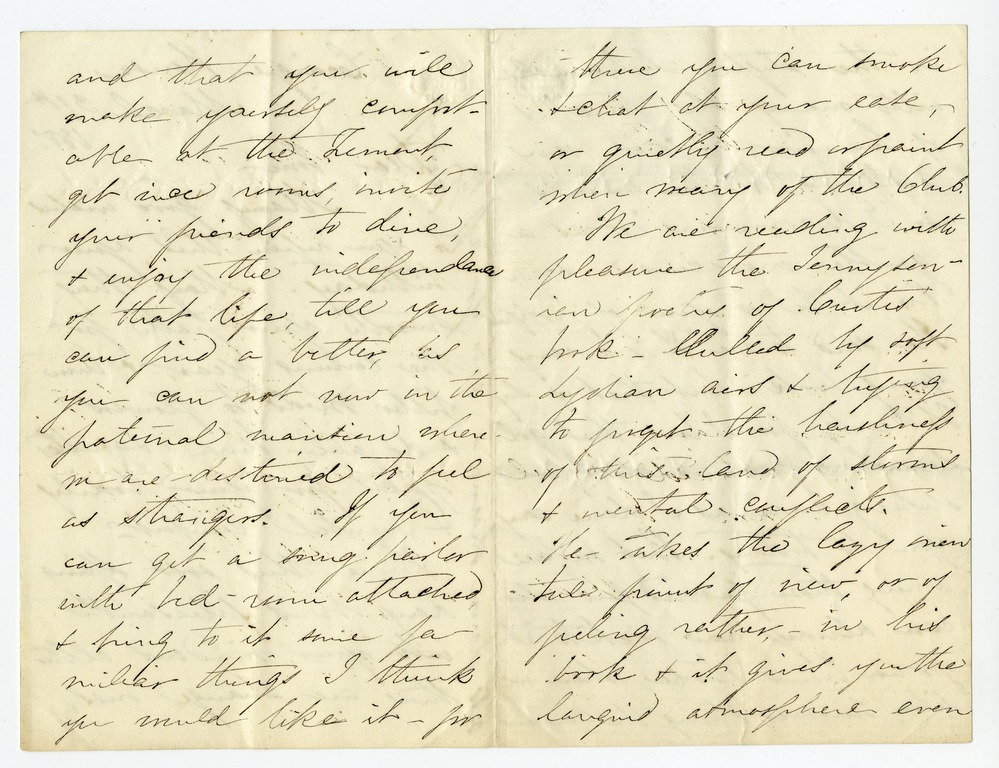 and that you will
make yourself comfort-
able at the Tremont,
get nice rooms, invite
your friends to dine,
& enjoy the independance
of that life, till you
can find a better, as
you can not now in the
paternal mansion where
we are destined to feel
as strangers. If you
can get a snug parlor
with bed-room attached,
& bring to it some fa-
miliar things I think
you would like it - for
there you can smoke
& chat at your ease,
or quietly read or paint
when weary of the Club.
We are reading with
pleasure the Tennyson-
ian poetry of Curtis'
book - lulled by soft
Lydian airs & trying
to forget the harshness
of this land of storms
& mental conflicts.
He takes the lazy orien
tal point of view, or of
feeling rather - in his
book & it gives you the
languid atmosphere even